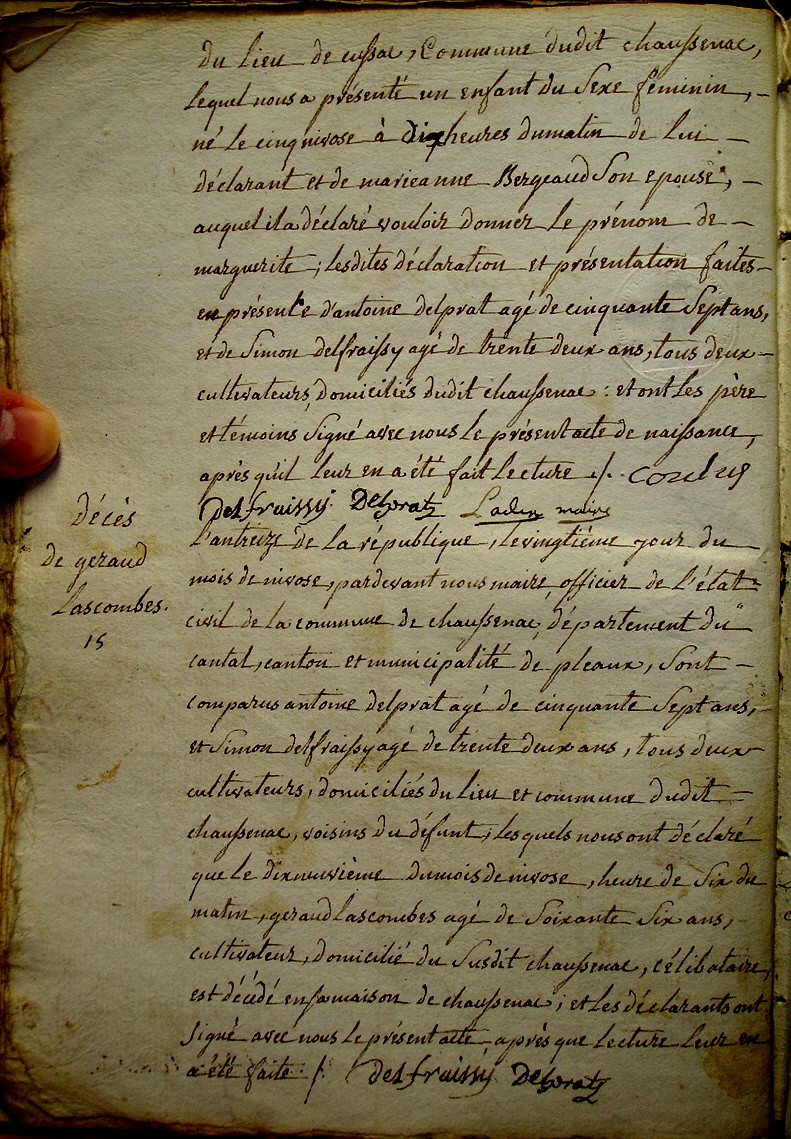 du lieu de cussac, Commune dudit chaussenac,
lequel nous a présenté un enfant du Sexe féminin,
né le cinq nivose à dix heures du matin de lui
déclarant et de marieanne Bergeaud Son epouse,
auquel il a déclaré vouloir donner le prénom de
marguerite; les dites déclaration et présentation faites
en présence d'antoine delprat agé de cinquante Sept ans,
et de Simon delfraissy agé de trente deux ans, tous deux
cultivateurs, domiciliés dudit chaussenac: et ont les père
et témoins Signé avec nous le présent acte de naissance,
après qu'il leur en a été fait lecture ./.
Delfraissy Delpratz maire
décès
de geraud
Lascombes.
15
l'an treize de la république, le vingtième jour du
mois de nivose, pardevant nous maire officier de l'état
civil de la commune de chaussenac, département du
cantal, canton et municipalité de pleaux, Sont
comparus antoine delprat agé de cinquante Sept ans,
et Simon delfraissy agé de trente deux ans, tous deux
cultivateurs, domiciliés du lieu et commune dudit
chaussenac, voisins du défunt, lesquels nous ont déclaré
que le dixneuvième du mois de nivose, heure de Six du
matin, geraud Lascombes agé de Soixante Six ans,
cultivateur, domicilié du Susdit chaussenac, célibataire,
est décédé en sa maison de chaussenac; et les déclarants ont
Signé avec nous le présent acte après que lecture leur en
a été faite ./. delfraissy Delpratz